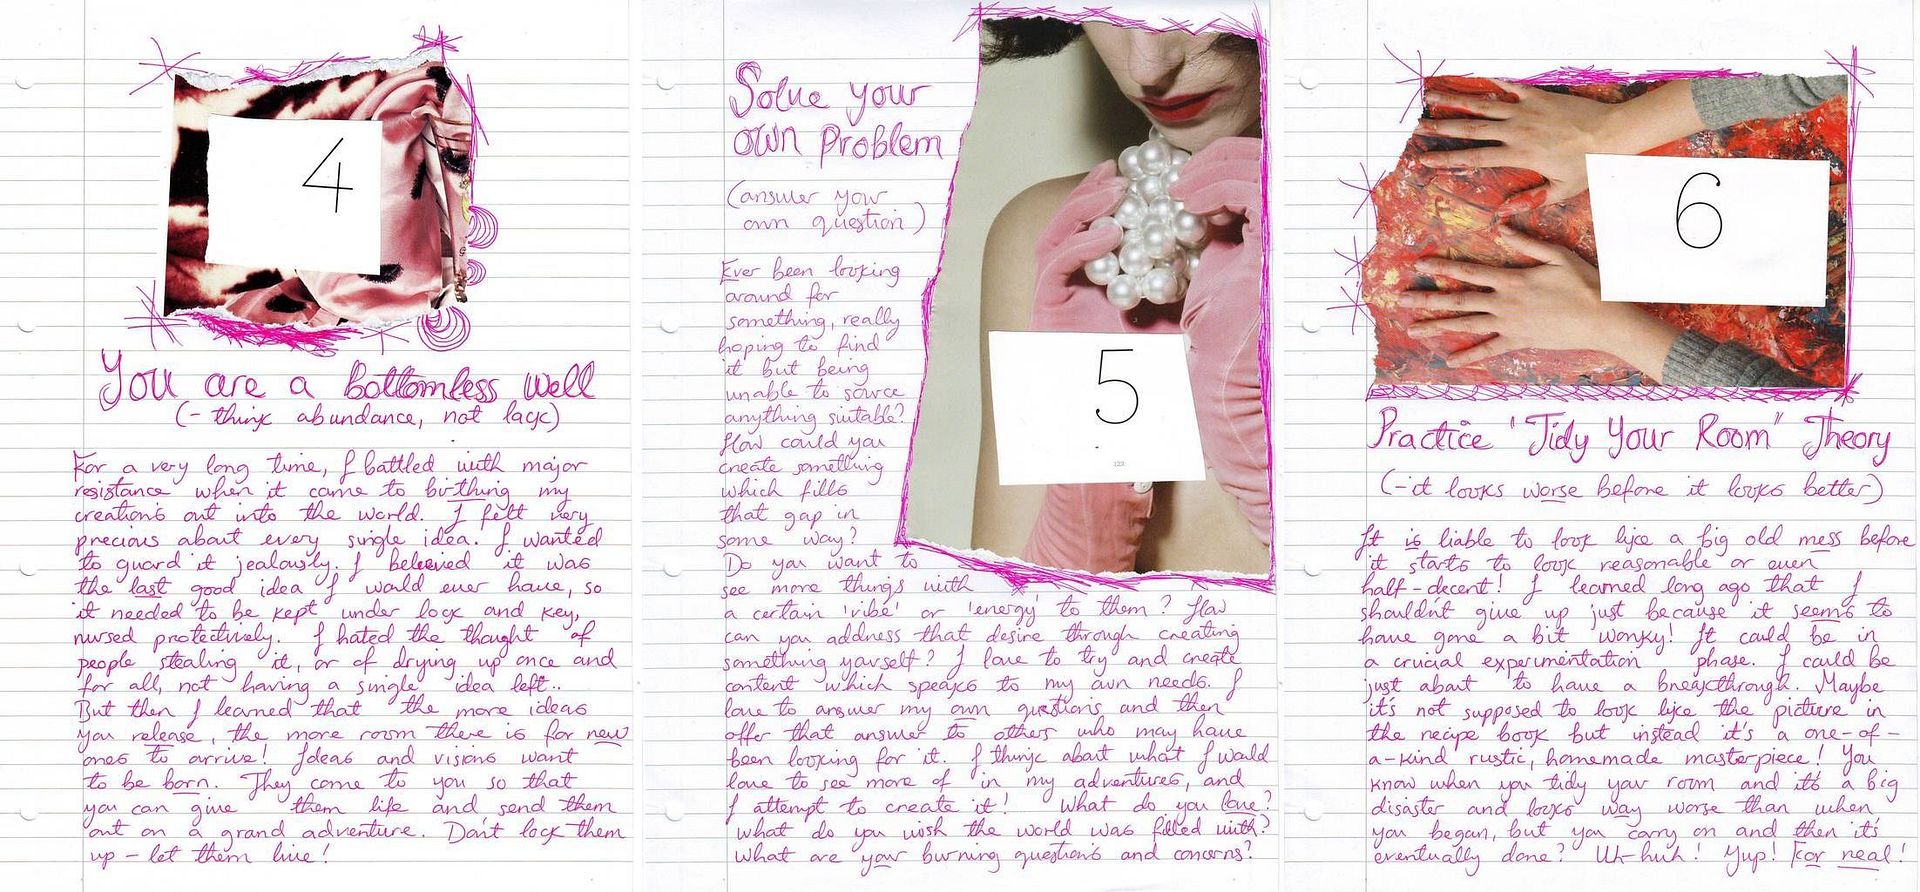 4
You are a bottomless well
(- think abundance, not lack)
For a very long time, I battled with major
resistance when it came to birthing my
creations out into the world. I felt very
precious about every single idea. I wanted
to guard it jealously. I believed it was
the last good idea I would ever have, so
it needed to be kept under lock and key,
nursed protectively. I hated the thought of
people stealing it, or of drying up once and
for all, not having a single idea left..
But then I learned that the more ideas
you release, the more room there is for new
ones to arrive! Ideas and visions want
to be born. They come to you so that
you can give them life and send them
out on a grand adventure. Don't lock them
up - let them live!
Solve your
own Problem
(answer your
own question)
5
123
Ever been looking
around for
something, really
hoping to find
it but being
unable to source
anything suitable?
How could you
create something
which fills
that gap in
some way?
Do you want to
see more things with
a certain 'vibe' or 'energy' to them? How
can you address that desire through creating
something yourself? I love to try and create
content which speaks to my own needs. I
love to answer my own questions and then
offer that answer to others who may have
been looking for it. I think about what I would
love to see more of in my adventures, and
I attempt to create it! What do you love?
What do you wish the world was filled with?
What are your burning questions and concerns?
6
Practice "Tidy Your Room" Theory
(-it looks worse before it looks better)
It is liable to look like a big old mess before
it starts to look reasonable or even
half-decent! I learned long ago that I
shouldn't give up just because it seems to
have gone a bit wonky! It could be in
a crucial experimentation phase. I could be
just about to have a breakthrough. Maybe
it's not supposed to look like the picture in
the recipe book but instead it's a one-of-
a-kind rustic, homemade masterpiece! You
know when you tidy your room and it's a big
disaster and looks way worse than when
you began, but you carry on and then it's
eventually done? Uh-huh! Yup! For real!